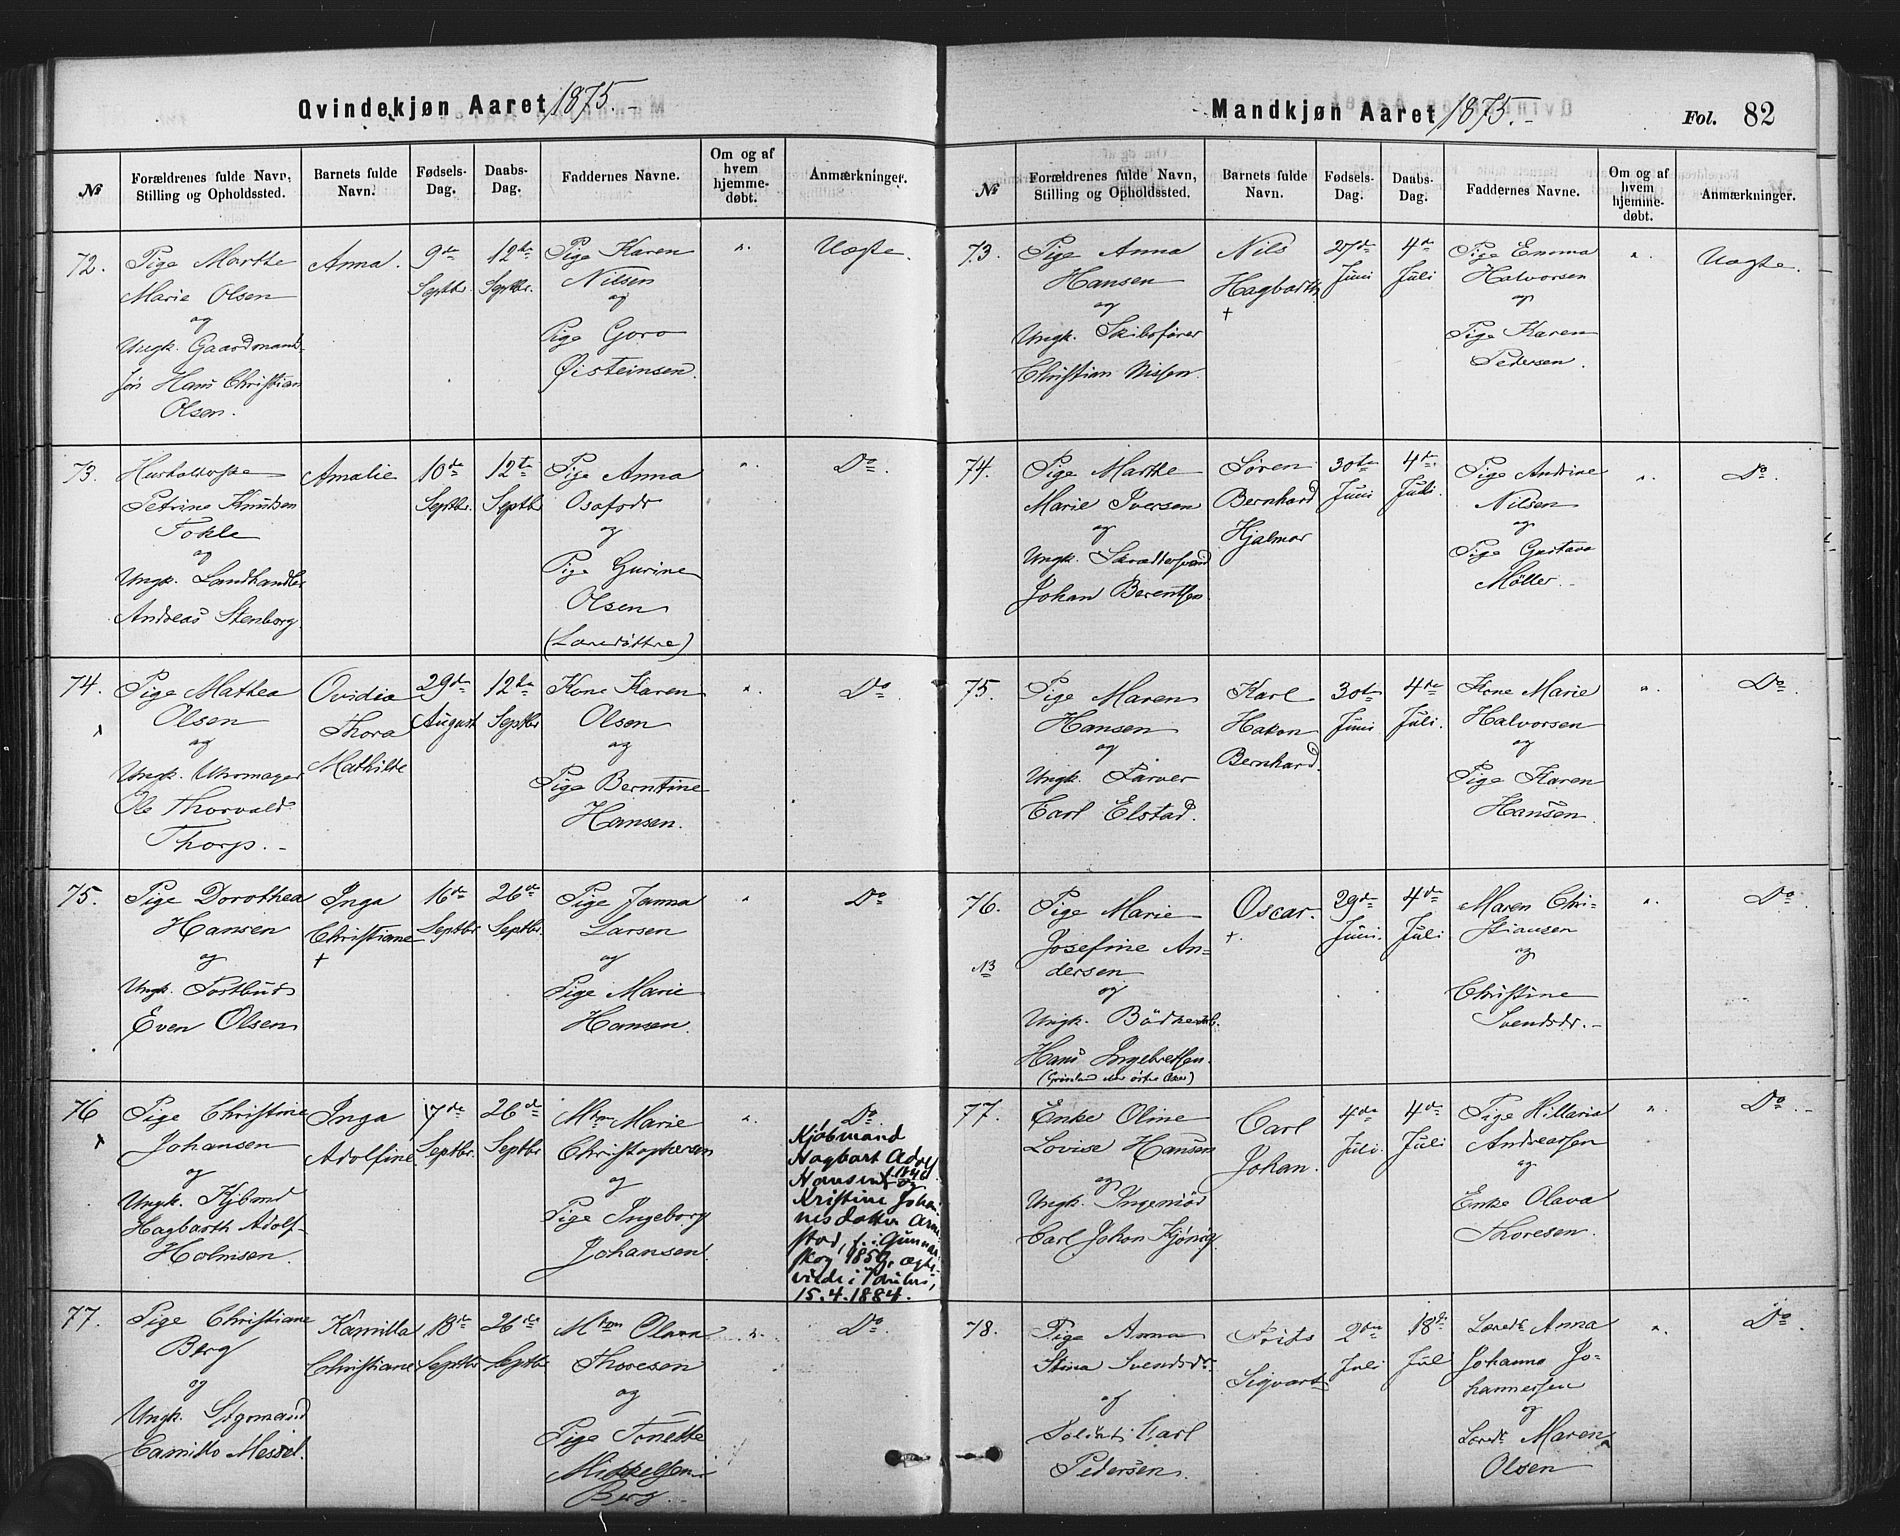 Qvindekjøn Aaret 1875.-
№
Forældrenes fulde Navn, Stilling og Opholdssted.
Barnets fulde Navn.
Fødsels-Dag.
Daabs-Dag.
Faddernes Navne.
Om og af hvem hjemme-døbt.
Anmærkninger.
72.
Pige Marthe
Marie Olsen
og
Ungk. Gaardmands-
søn Hans Christian
Olsen.
Anna.
9de
Septbr.
12te
Septbr.
Pige Karen
Nilsen
og
Pige Goro
Øisteinsen.
".
Uægte.
73.
Husholderske
Petrine Knudsen
Tokle
og
Ungk. Landhandler
Andreas Stenborg.
Amalie
10de
Septbr.
12te
Septb
Pige Anna
Osafodr
og
Pige Gurine
Olsen
".
Do.
74.
x
Pige Mathea
Olsen
og
Ungk. Uhrmager
Ole Thorvald
Thorp.-
Ovidia
Thora
Mathilde
29de
August
12te
Septbr
Kone Karen
Olsen
og
Pige Berntine
Hansen.
".
Do
75.
Pige Dorothea
Hansen
og
Ungk. Postbud
Even Olsen
Inga
Christiane
+
16de
Septbr
26de
Septbr.
Pige Janna
Larsen
og
Pige Marie
Hansen.
"
Do
76
x
Pige Christine
Johansen
og
Ungk. Kjbmd
Hagbarth Adolf
Holmsen.
Inga
Adolfine
7de
Septbr.
26de
Septbr
Mtm Marie
Christophersen
og
Pige Ingeborg
Johansen.
"
Do.
Kjøbmand
Hagbart Adolf
Hansen
Kristine Johan-
nesdatter
f. i Gunnar-
skog 1850, ægte-
viede i
15.4.1884.
77.
Pige Christiane
Berg
og
Ungk. Styrmand
Camillo Messel.
Kamilla
Christiane
18de
Septbr
26de
Septbr
Mtm Olava
Thoresen
og
Pige Tonette
Mikkelsen
Berg.-
".
Do.
Mandkjøn Aaret 1875.-
Fol. 82
№
Forældrenes fulde Navn, Stilling og Opholdssted.
Barnets fulde Navn.
Fødsels-Dag.
Daabs-Dag.
Faddernes Navne.
Om og af hvem hjemme-døbt.
Anmærkninger.
73.
Pige Anna
Hansen
og
Ungk. Skibsfører
Christian Nissen.
Nils
Hagbarth
+
27de
Juni
4de
Juli
Pige Emma
Halvorsen
og
Pige Karen
Pedersen.
".
Uægte.
74.
Pige Marthe
Marie Iversen
og
Ungk. Skræddersvend
Johan Berentsen.
Søren
Bernhard
Hjalmar
30te
Juni
4de
Juli.
Pige Andrine
Nilsen
og
Pige Gustava
Møller.-
".
Do.
75.
Pige Maren
Hansen
og
Ungk. Farver
Carl Elstad.
Karl
Hakon
Bernhard.
30te
Juni
4de
Juli.
Kone Marie
Halvorsen
og
Pige Karen
Hansen.
".
Do.
76.
NB
Pige Marie
Josefine An-
dersen
og
Ungk. Bødker
Hans Ingebretsen.
Oscar.
+.
29de
Juni.
4de
Juli
Maren Chri-
stiansen
og
Christine
Svendsdr.-
".
Do.
77.
Enke Oline
Lovise Hansen
og
Ungk. Ingeniør
Carl Johan
Carl
Johan.
4de
Juli.
4de
Juli
Pige Hillaria
Andreassen
og
Enke Olava
Thoresen.
".
Do.-
78.
Pige Anna
Stina Svendsdr.
af
Soldat Carl
Pedersen.
Frits
Sigvart
2den
Juli
18de
Jul
Læredr. Anna
Johanna Jo-
hannessen
og
Læredr. Maren
Olsen
".
Do.